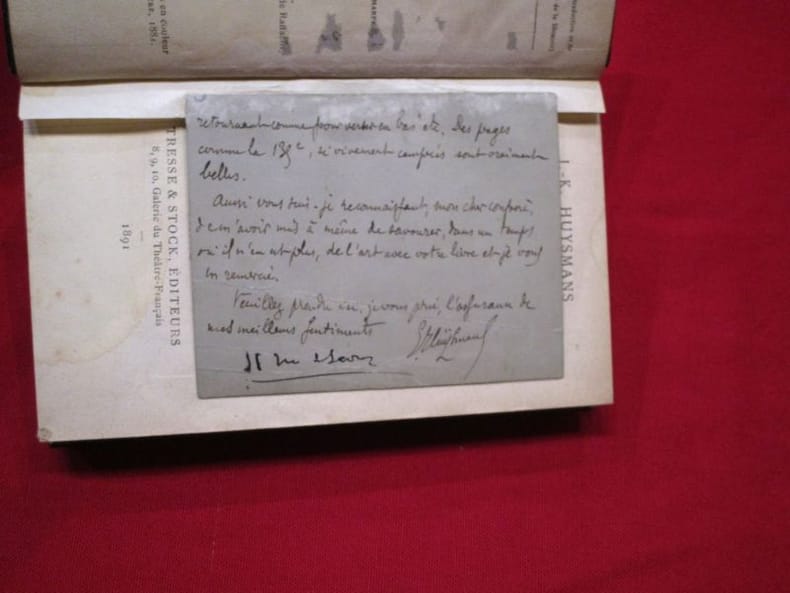 retournant comme pour verser en bas etc. Des pages
comme la 135e, si vivement campées sont vraiment
belles.
Aussi vous suis-je reconnaissant, mon cher confrère,
de m'avoir mis à même de savourer, dans un temps
où il n'en est plus, de l'art avec votre livre et je vous
en remercie.
Veuillez prendre ici, je vous prie, l'assurance de
mes meilleurs sentiments
11 rue de Sèvres
J.-K. HUYSMANS
TRESSE & STOCK, EDITEURS
8, 9, 10, Galerie du Théâtre-Français
1891
en couleur
1881.